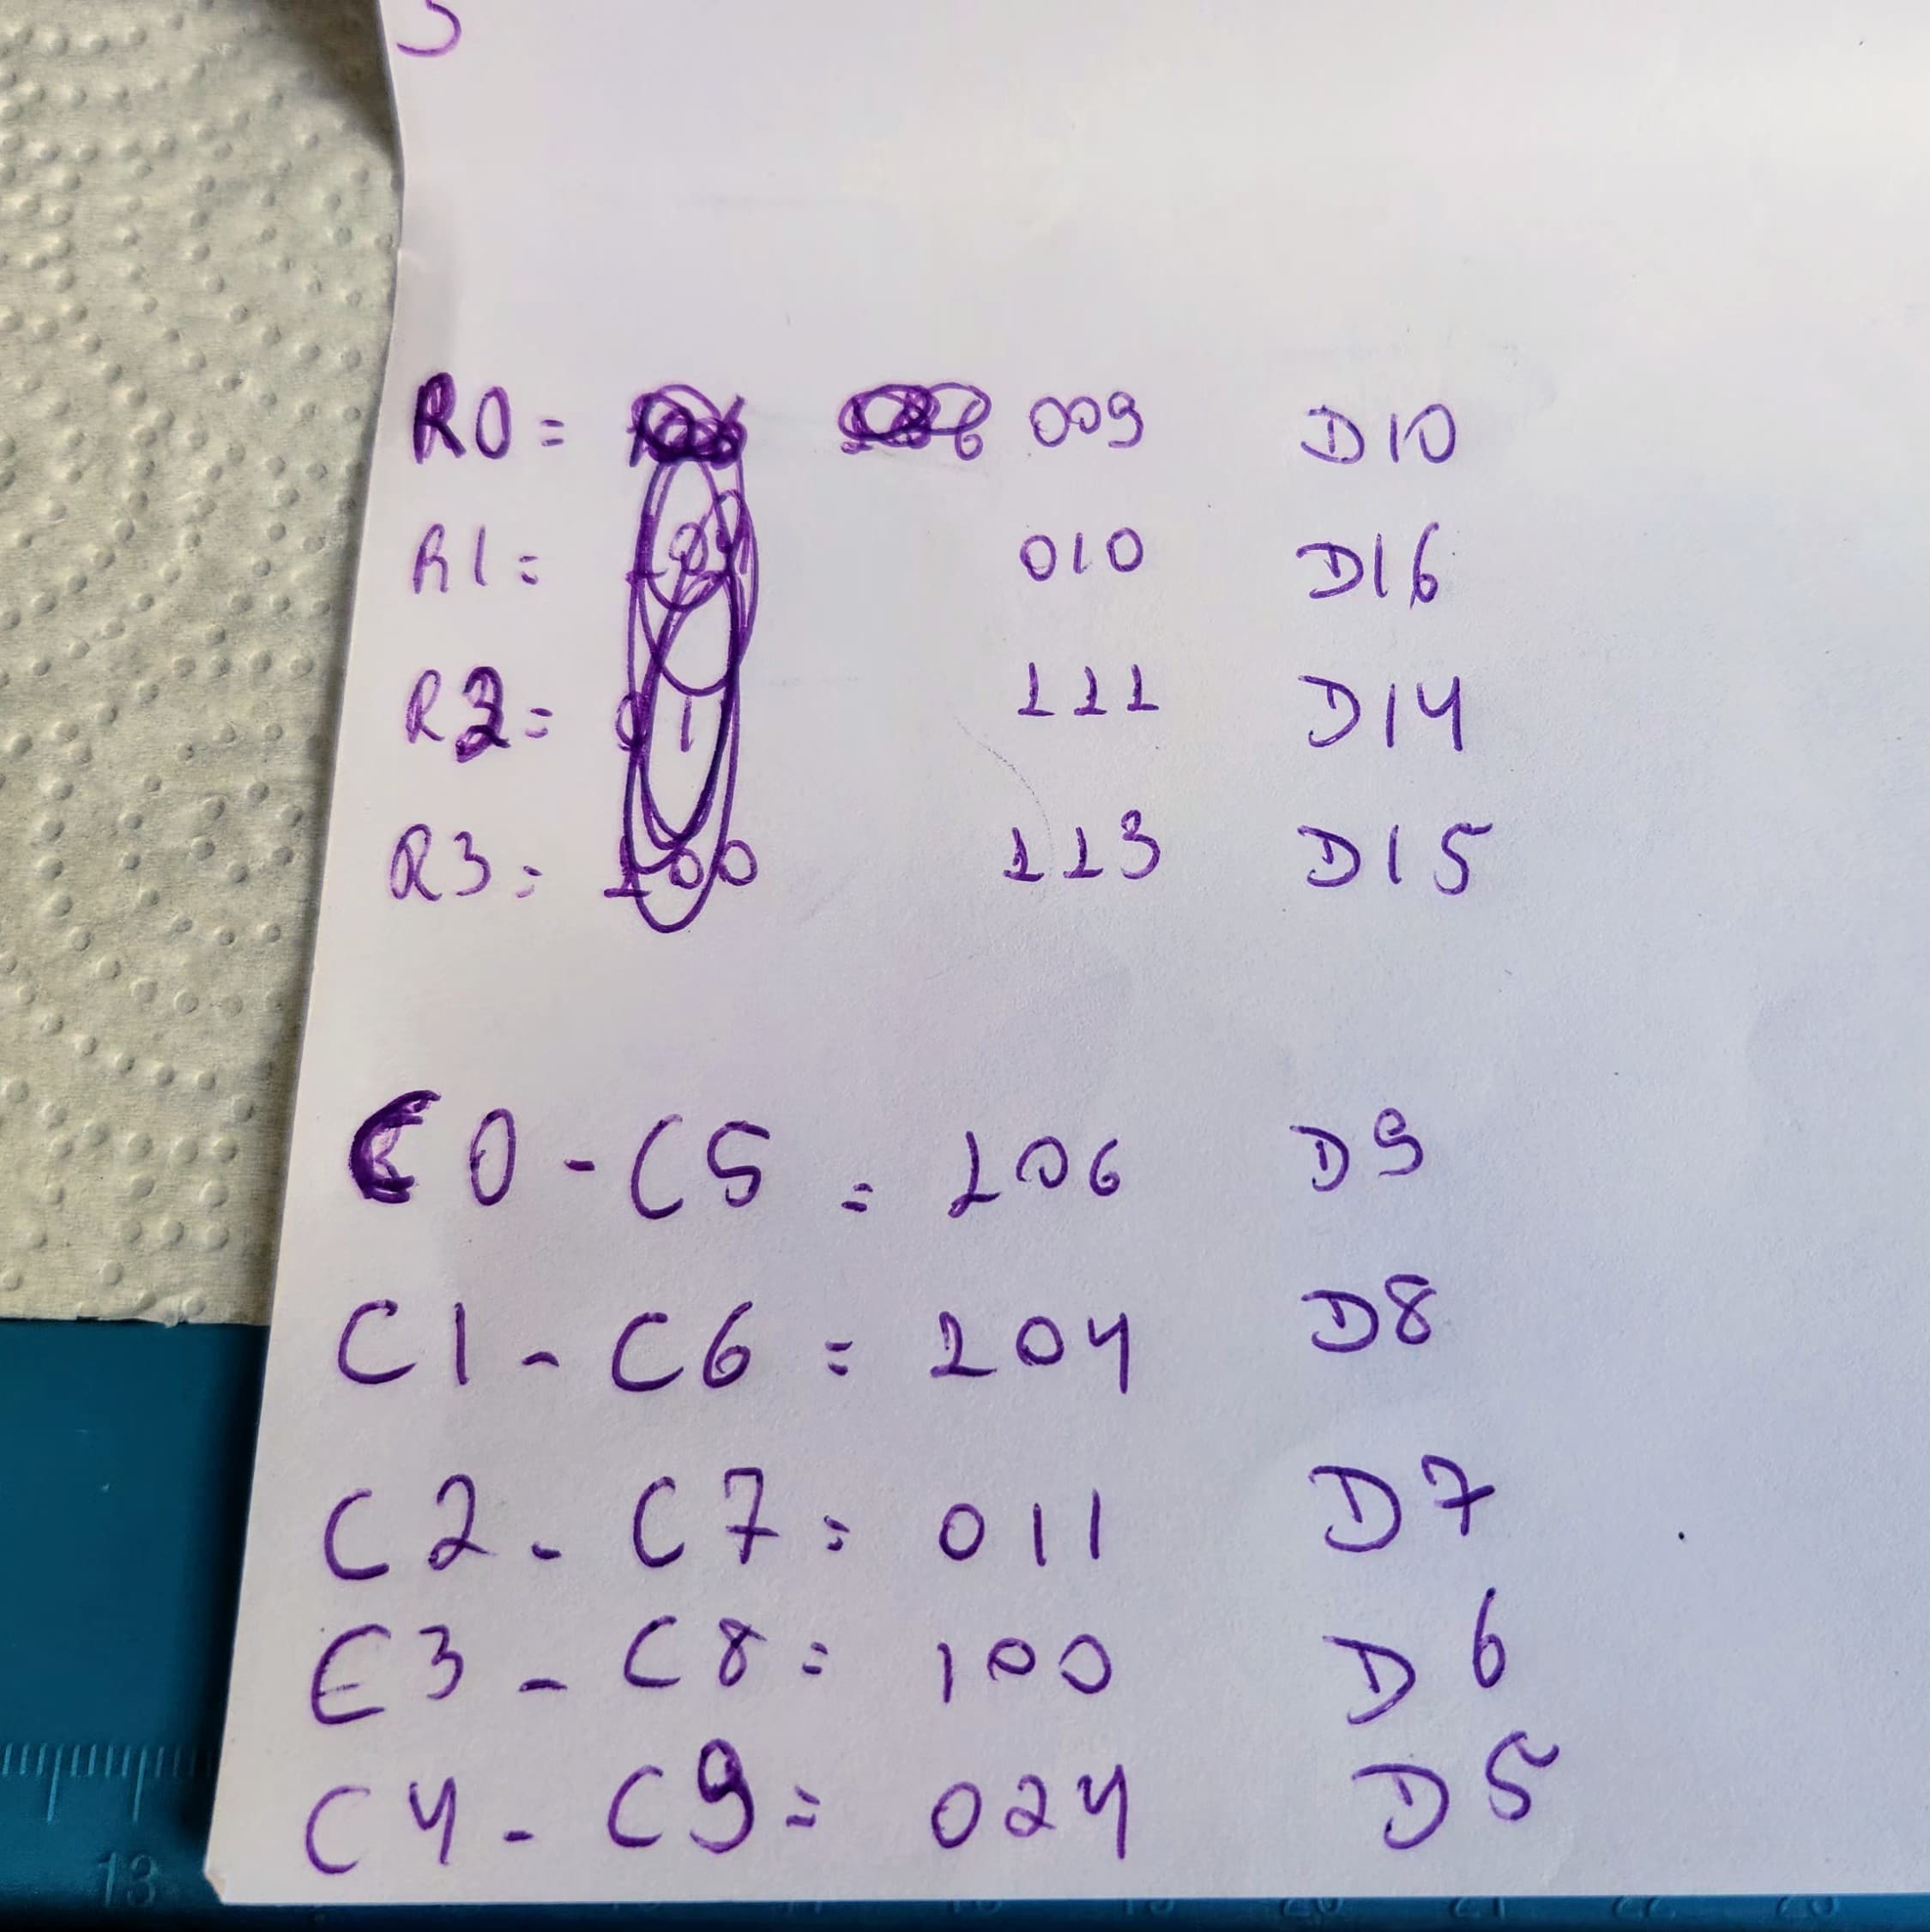 R0 = 009 D10
R1 = 010 D16
R2 = 111 D14
R3 = 113 D15
C0 - C5 = 106 D9
C1 - C6 = 104 D8
C2 - C7 = 011 D7
C3 - C8 = 100 D6
C4 - C9 = 024 D5
13